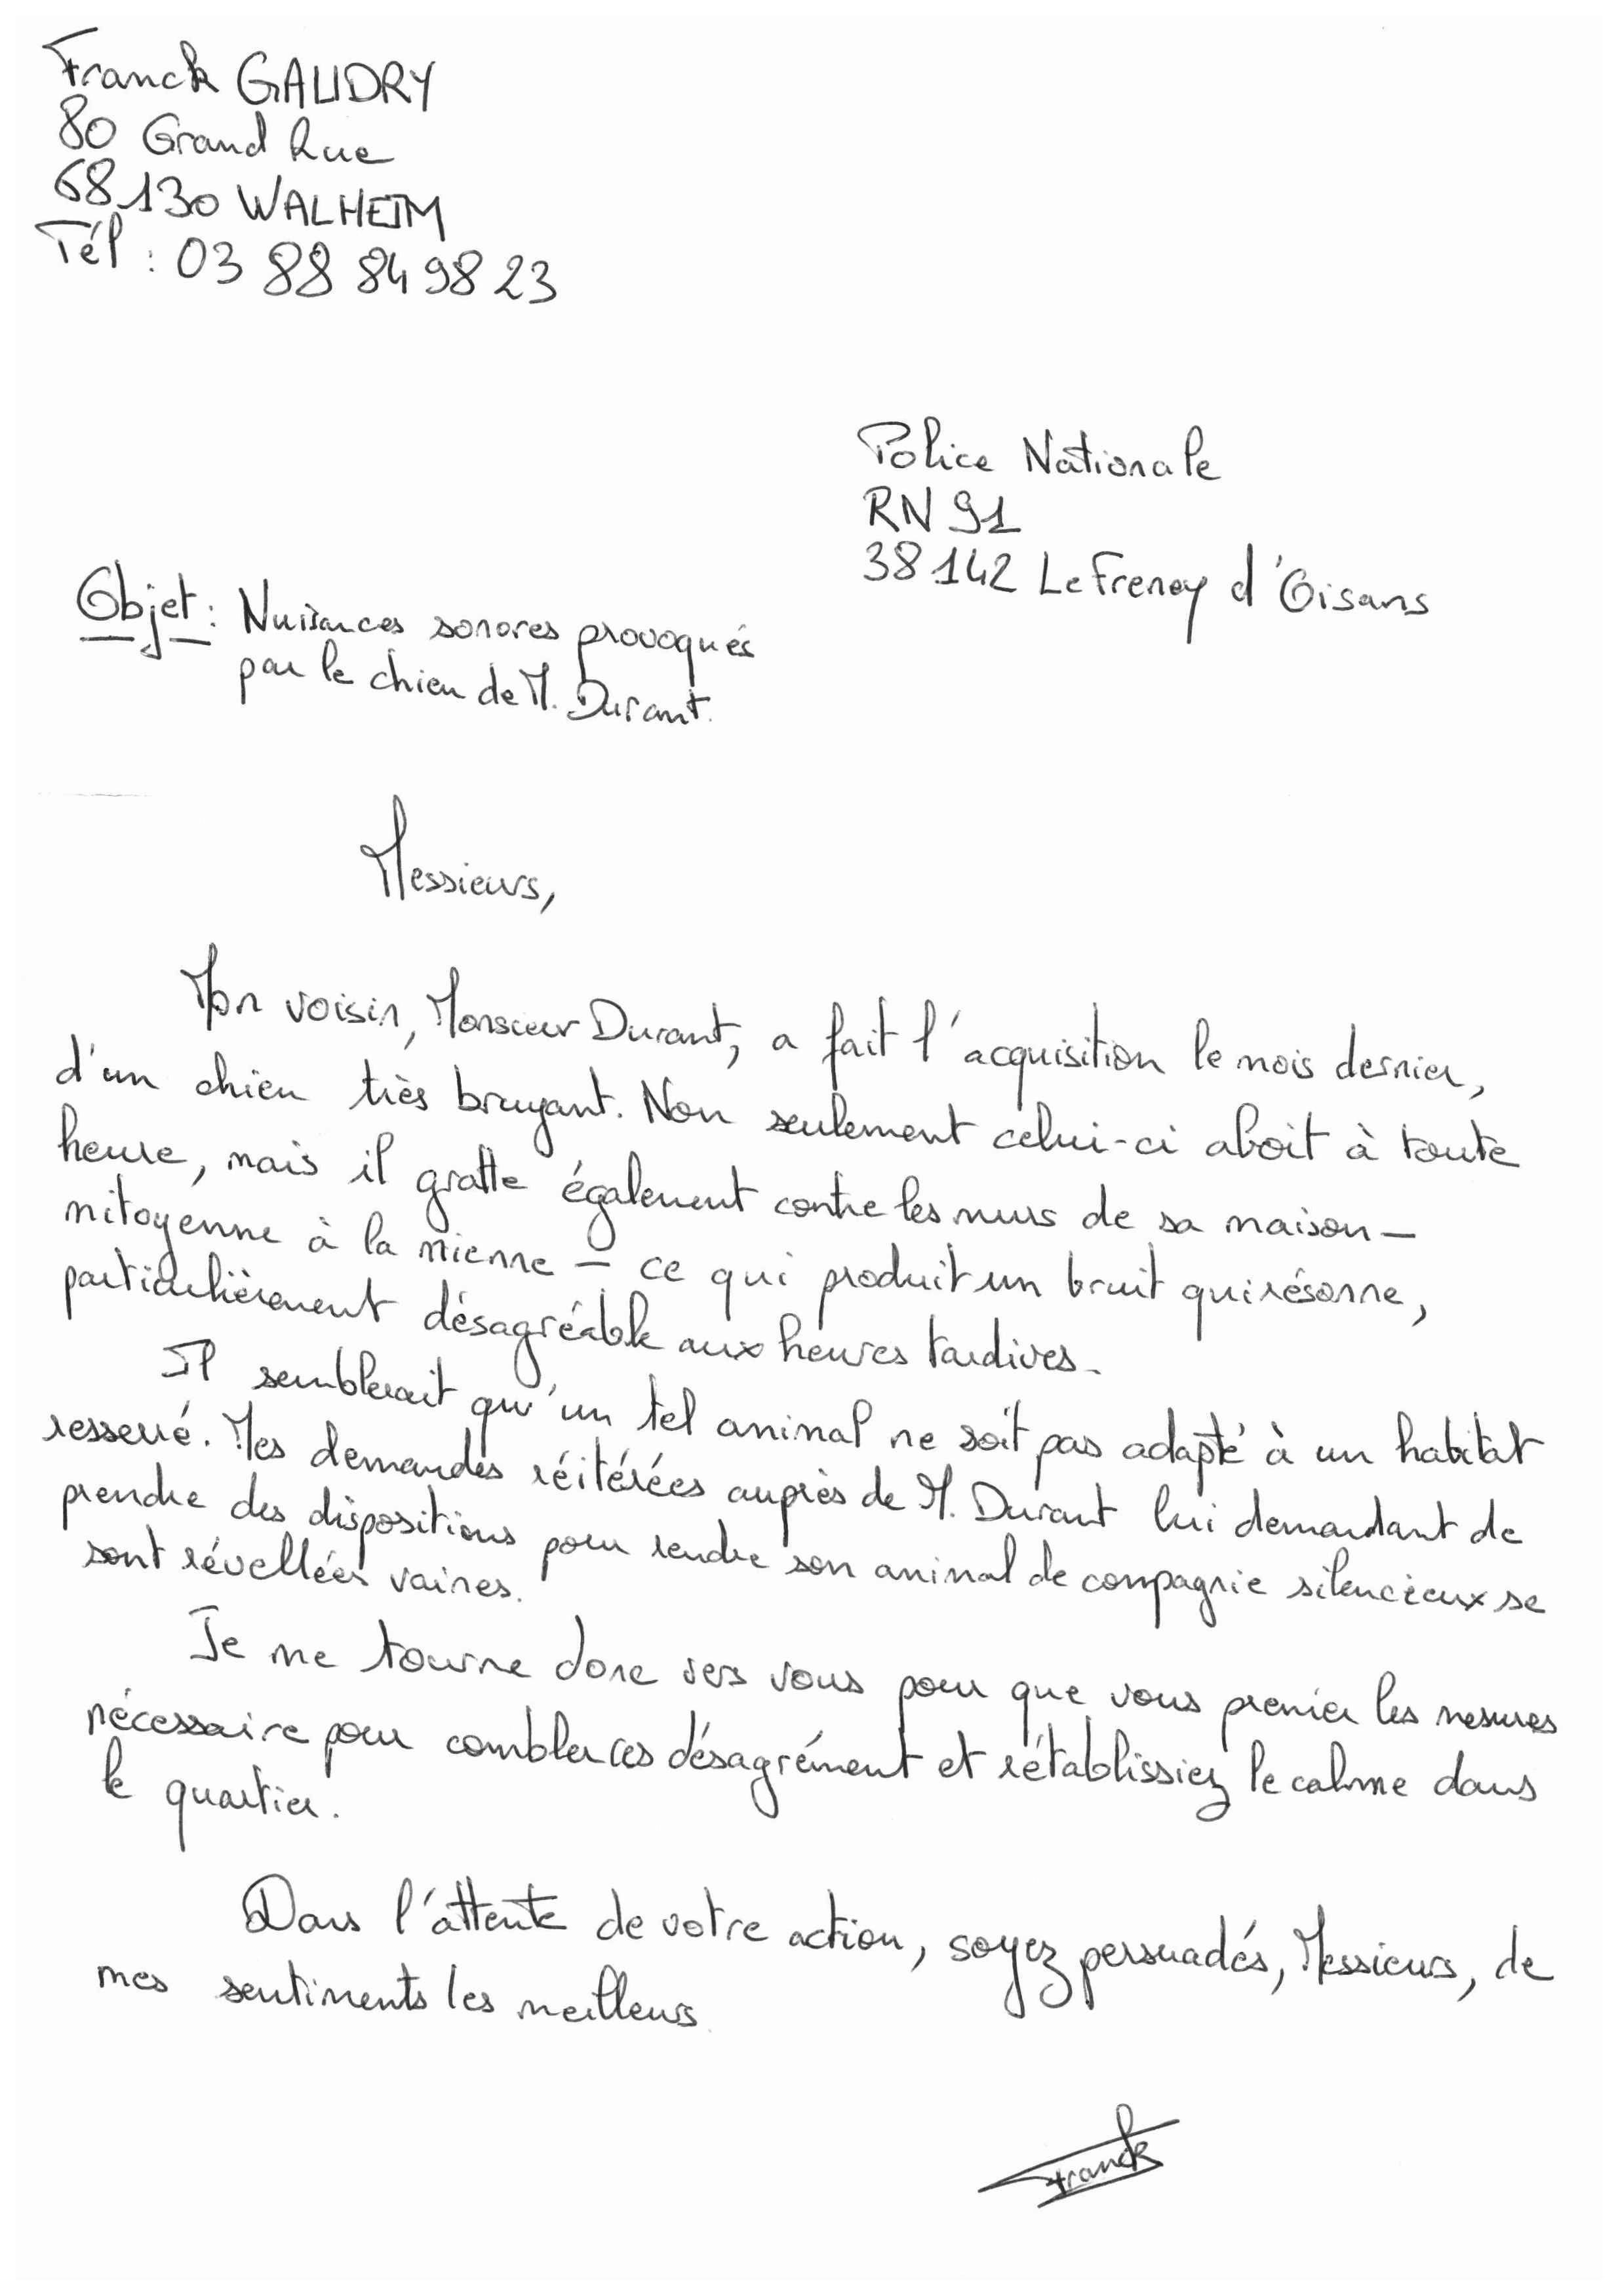 Franck GAUDRY
80 Grand Rue
68130 WALHEIM
Tél : 03 88 84 98 23
Police Nationale
RN 91
38142 Le Freney d'Oisans
Objet : Nuisances sonores provoqués
par le chien de M. Durant.
Messieurs,
Mon voisin, Monsieur Durant, a fait l'acquisition le mois dernier,
d'un chien très bruyant. Non seulement celui-ci aboit à toute
heure, mais il gratte également contre les murs de sa maison -
mitoyenne à la mienne - ce qui produit un bruit qui résonne,
particulièrement désagréable aux heures tardives.
Il semblerait qu'un tel animal ne soit pas adapté à un habitat
resserré. Mes demandes réitérées auprès de M. Durant lui demandant de
prendre des dispositions pour rendre son animal de compagnie silencieux se
sont révellées vaines.
Je me tourne donc vers vous pour que vous preniez les mesures
nécessaire pour combler ces désagrément et rétablissiez le calme dans
le quartier.
Dans l'attente de votre action, soyez persuadés, Messieurs, de
mes sentiments les meilleurs.
Franck